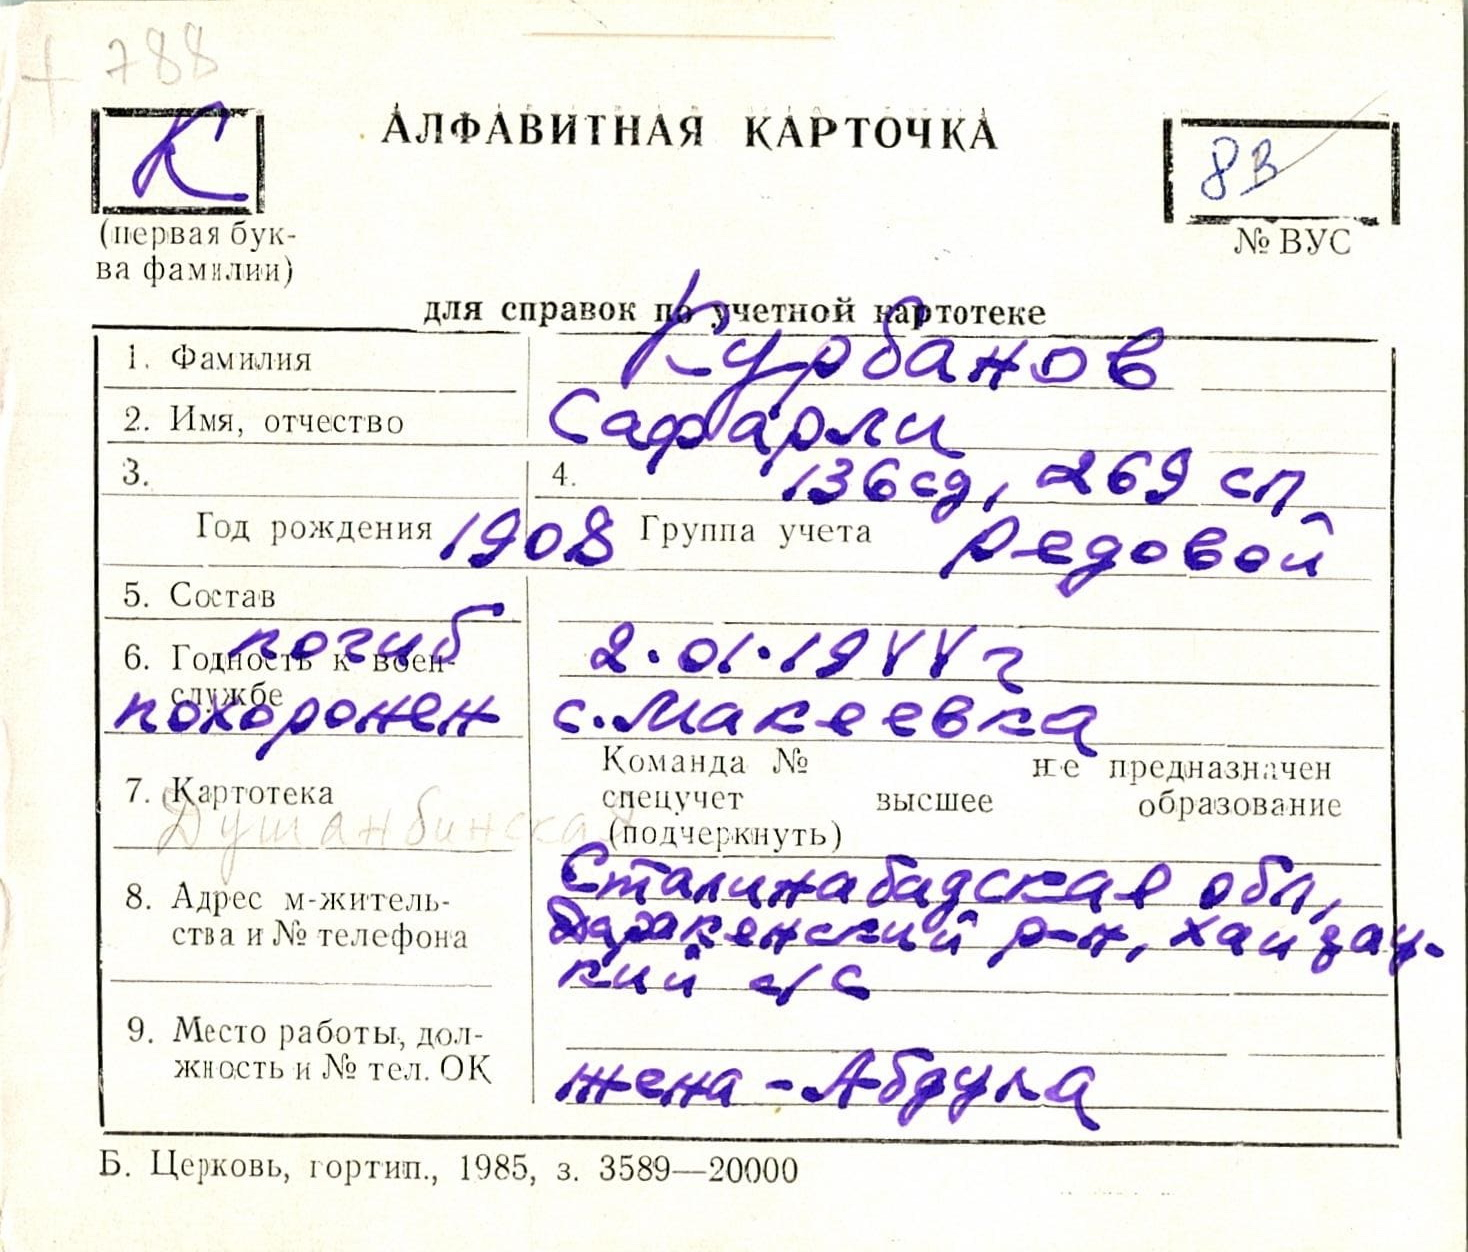 + 788
К
АЛФАВИТНАЯ КАРТОЧКА
8В
(первая бук-
ва фамилии)
№ ВУС
для справок по учетной картотеке
1. Фамилия Курбанов
2. Имя, отчество Сафарли
3. 4. 136 сд, 269 сп
Год рождения 1908 Группа учета редовой
5. Состав
погиб 2.01.1944 г
6. Годность к воен-
службе
похоронен с. Макеевка
Команда № не предназначен
7. Картотека спецучет высшее образование
Душанбинская (подчеркнуть)
Сталинабадская обл,
8. Адрес м-житель-
ства и № телефона р-н,
кий с/с
9. Место работы, дол-
жность и № тел. ОК
жена - Абдула
Б. Церковь, гортип., 1985, з. 3589—20000